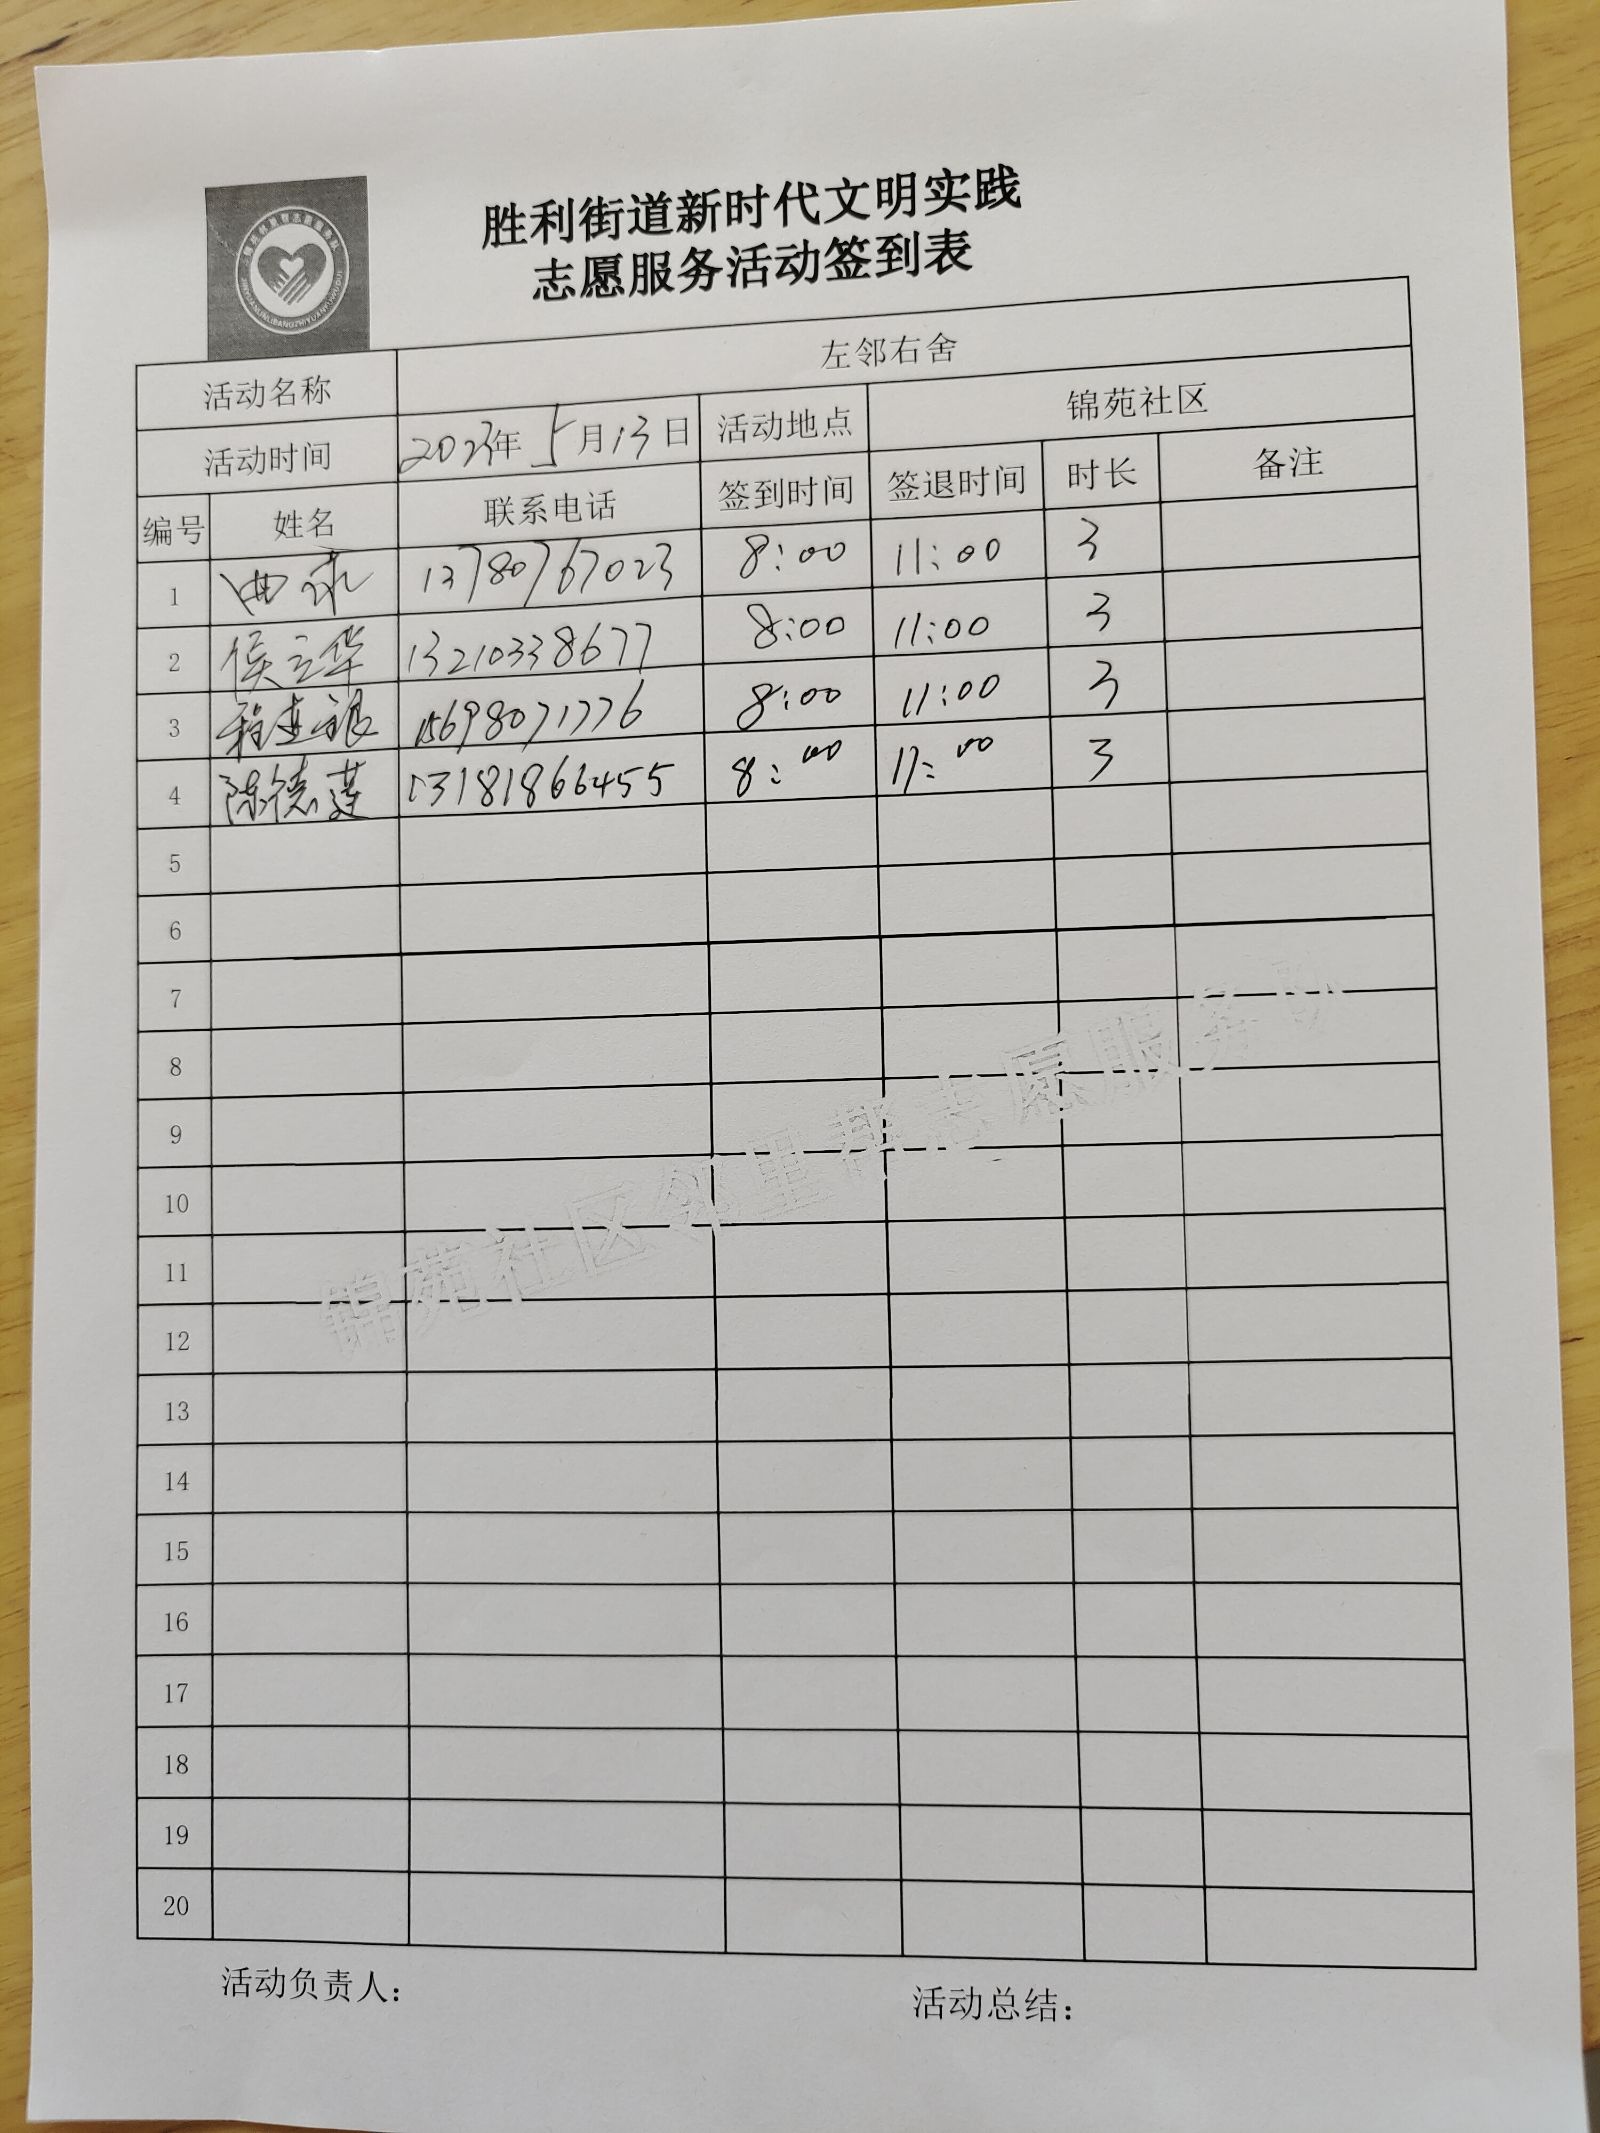 胜利街道新时代文明实践
志愿服务活动签到表
活动名称 左邻右舍
活动时间 2023年 5月13日 活动地点 锦苑社区
编号 姓名 联系电话 签到时间 签退时间 时长 备注
1 曲 13780767023 8:00 11:00 3
2 侯立华 13210338677 8:00 11:00 3
3 程 银 15698071776 8:00 11:00 3
4 陈德莲 13181866455 8:00 11:00 3
5
6
7
8
9
10
11
12
13
14
15
16
17
18
19
20
锦苑社区邻里帮志愿服务队
活动负责人： 活动总结：